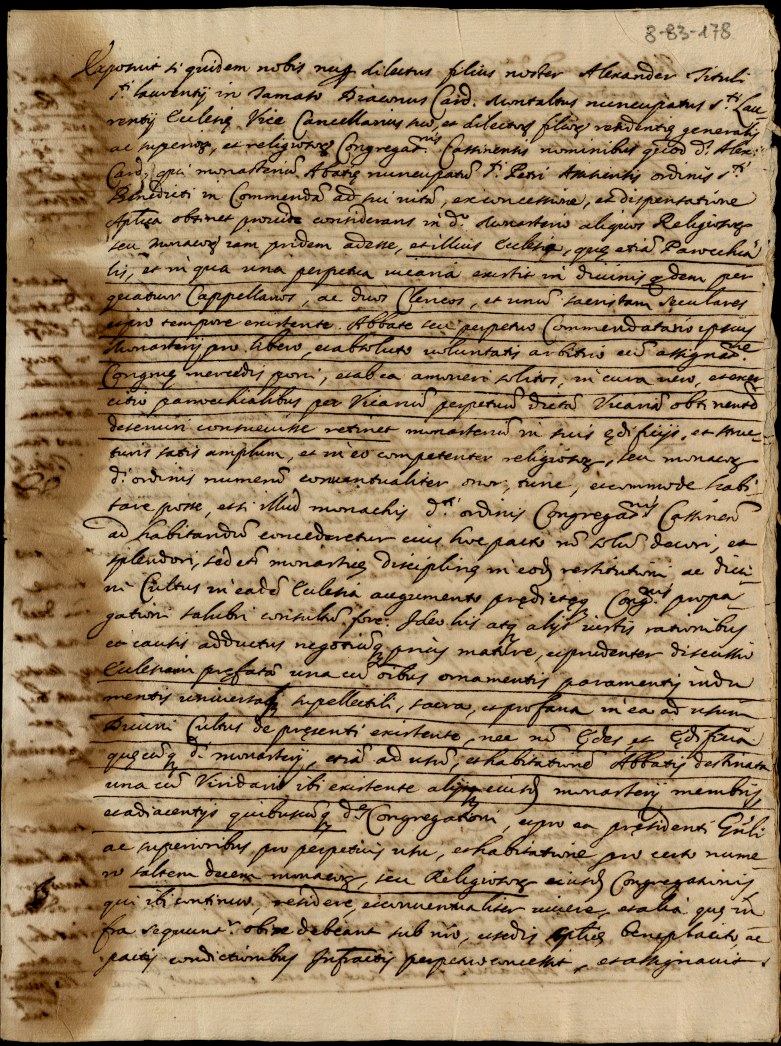 8-83-178
Exposuit si quidem nobis nup dilectus filius noster Alexander Tituli
sti laurentij in Damaso Diaconus Card. Montaltus nuncupatus S.te Lau
rentij Eccleg Vice Cancellarius et dilectos filios residentis generalis
ac superiorq, et religiosorq Congregatnis Cassinensis nominibus quod ds Alexr
Card. qui monasterium Abbatię nuncupatũ sti Petri Assisiensis ordinis sti
Benedicti in Commendã ad sui vitã, ex concessione, et dispensatione
Aplica obtinet provide considerans in do Monasterio aliquos Religiosos
seu monacos iam pridem adesse, et illius Ecclesię, quę etiã Parochia
lis, et in qua una perpetua vicaria existit in divinis qdem per
quatuor Cappellanos, ac duos Clericos, et unũ sacristam seculares
et pro tempore existente Abbate seu perpetuo Commendatario ipsius
Monasterij pro libero, et absoluto voluntatis arbitrio cũ assignane
Congruę mercedis poni, et ab ea amoveri solitos, in cura vero, et exer
citio parrochialibus per Vicariũ perpetuum dictã Vicariã obtinentẽ
deserviri consuevisse retinet monasterium in suis ędificijs, et struc
turis satis amplum, et in eo competenter religiosorq, seu monacorq
di ordinis numerũ conventualiter, et commode habi
tare posse, et si illud monachis dti ordinis Congreganis Cassineñ
ad habitandũ concederetur eius hoc pacto nõ solũ decori, et
splendori, sed etiã monasticę disciplinę in eodẽ restitutioni ac divi
ni Cultus in eadẽ Ecclesia augumento prędictęq Congnis propa-
gationi salubri consultũ fore. Ideo his atq alijs iustis rationibus
et causis adductus negotioq prius mature, et prudenter discusso
Ecclesiam prefatã una cũ oĩbus ornamentis paramentis indu
mentis universaq suppellectili, sacra, et profana in ea ad usum
Divini Cultus de pręsenti existente, nec nõ Ędes, et Ędificia
quęcũq di monasterij, etiã ad usũ, et habitationẽ Abbatis destinata
una cũ Viridario ibi existente alijsq eiusdẽ monasterij membris,
et adiacentijs quibuscũq dę Congregationi, et pro ea pręsidenti Gñli
ac superioribus, pro perpetuo usu, et habitatione pro certo nume
ro saltem decem monacorq, seu Religiosorq eiusdẽ Congregationis,
qui ibi continuo, residere, et conventualiter vivere, et alia quę in
fra sequuntr obire debeant sub nrõ, et sedis Aplicę beneplacito, ac
pactis condictionibus infractis perpetuo concessit, et assignavit.